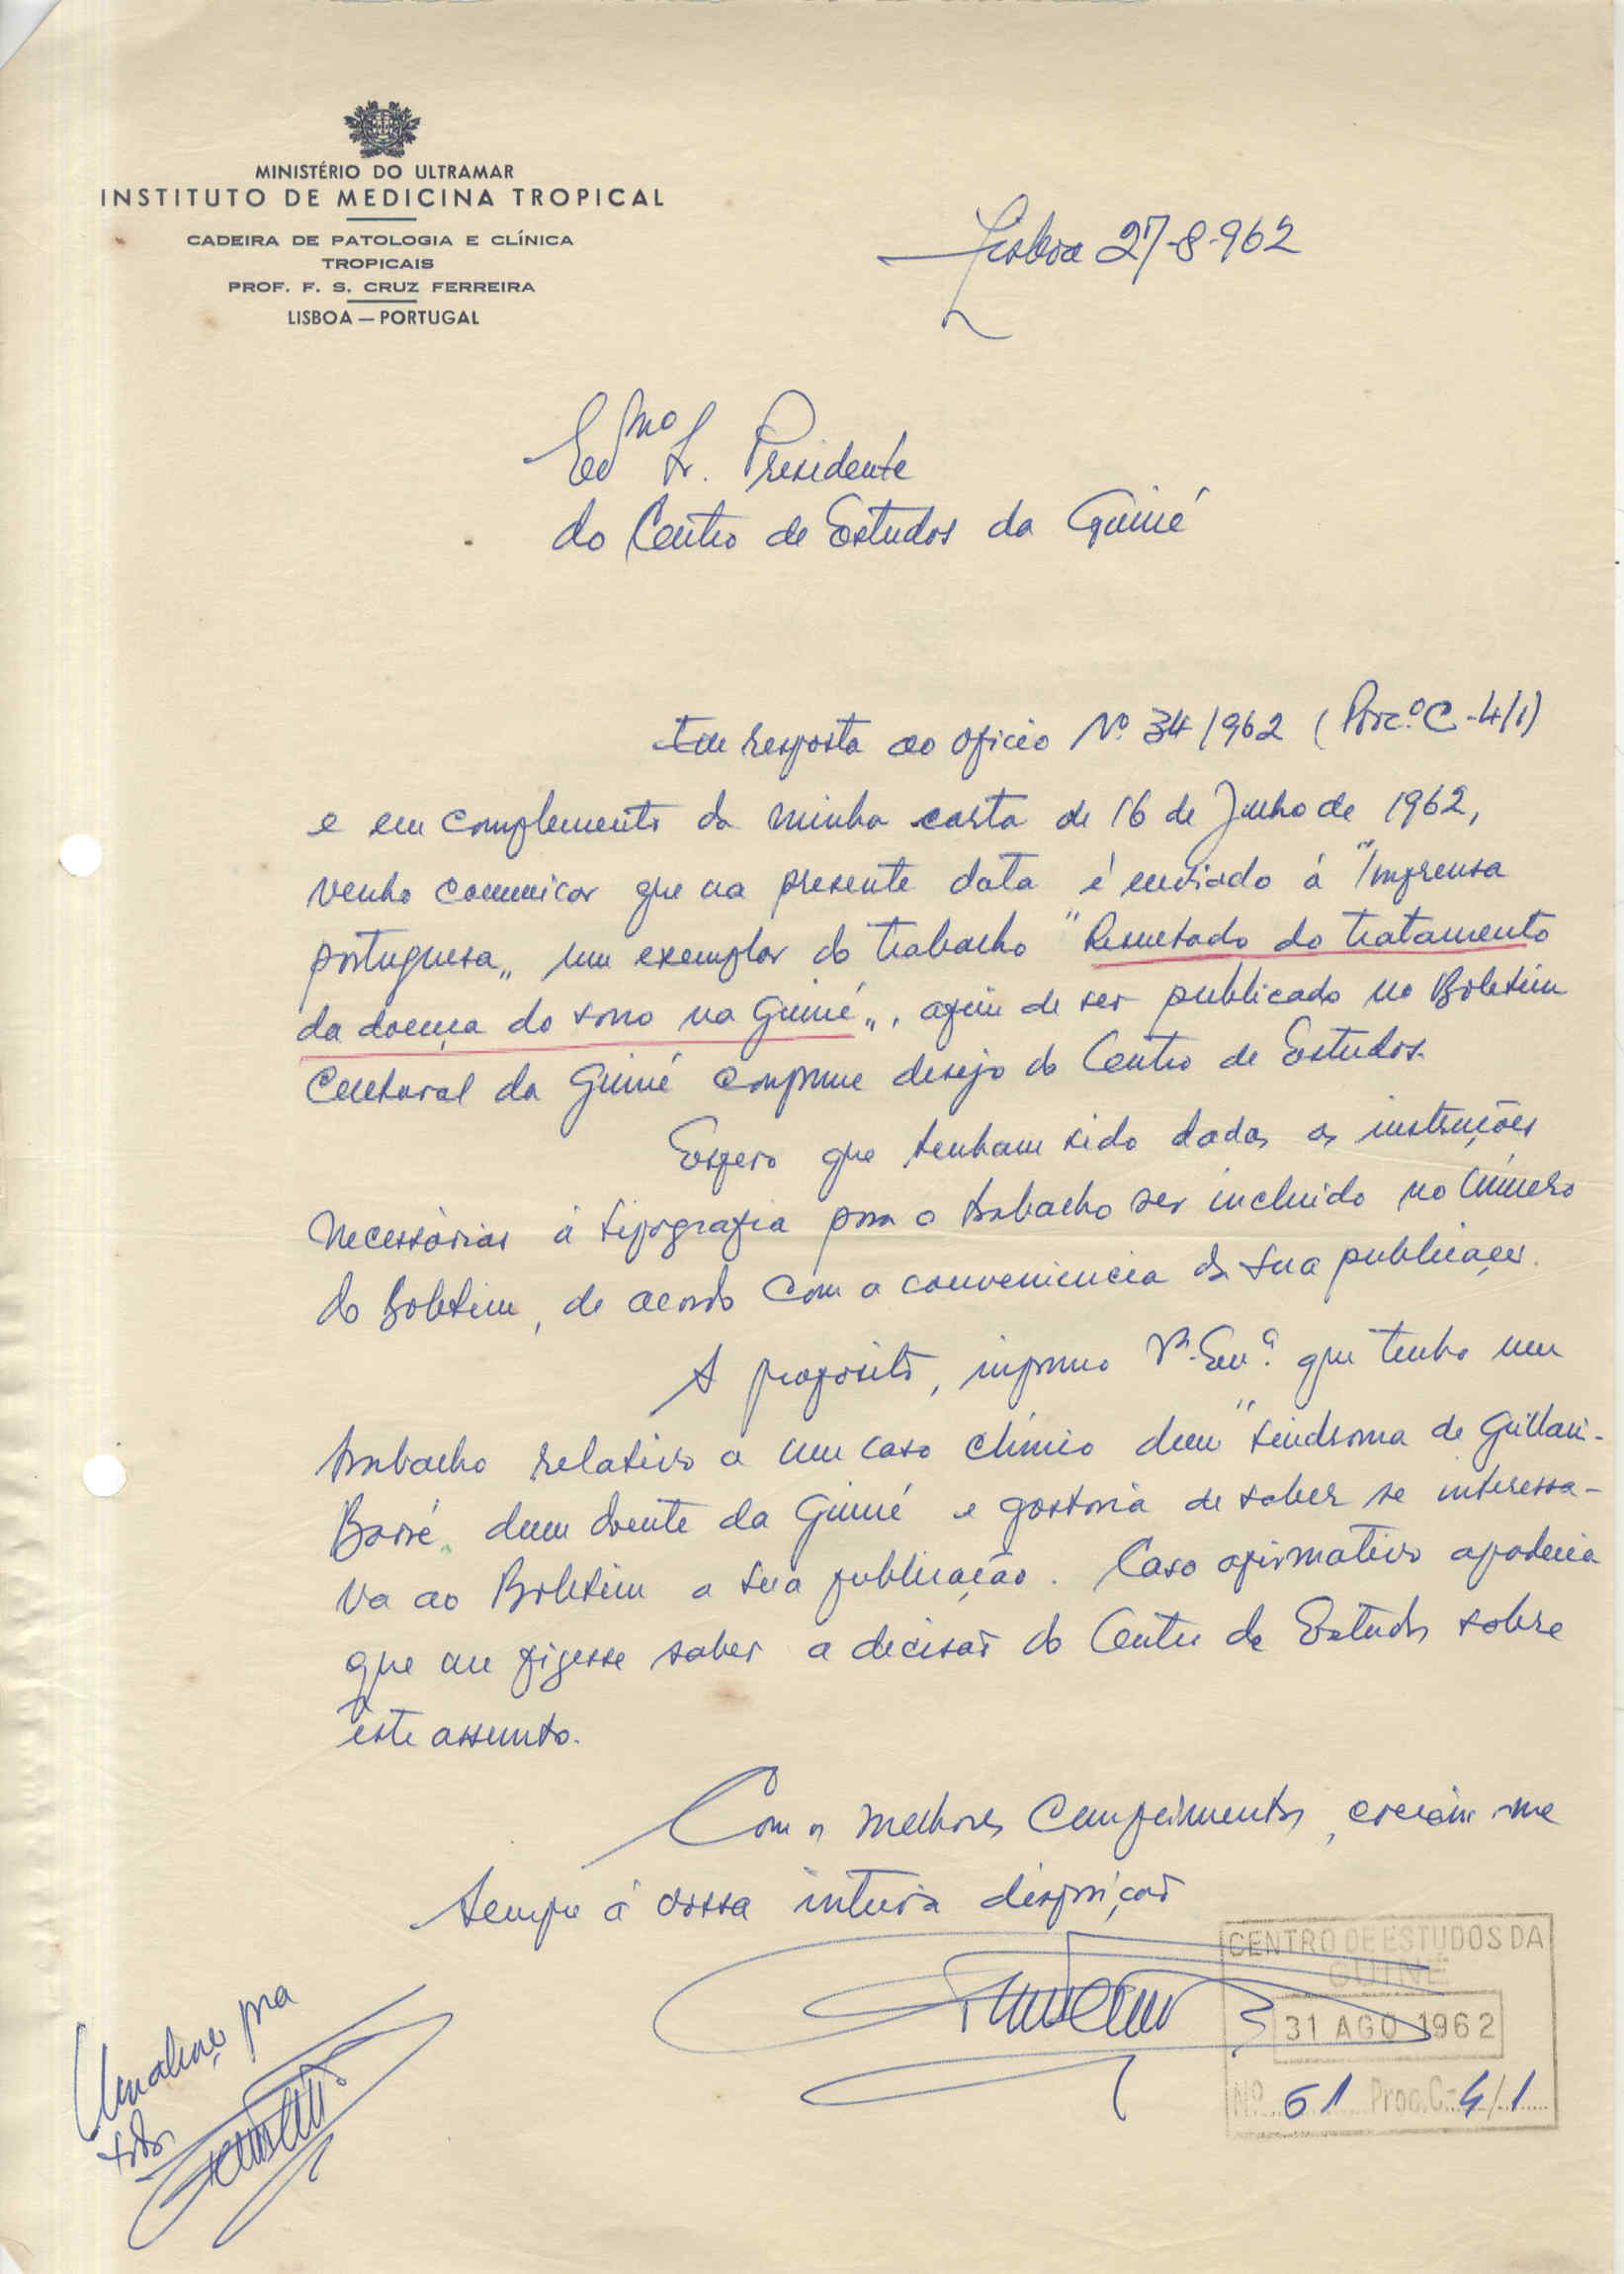 MINISTÉRIO DO ULTRAMAR
INSTITUTO DE MEDICINA TROPICAL
CADEIRA DE PATOLOGIA E CLÍNICA
TROPICAIS
PROF. F. S. CRUZ FERREIRA
LISBOA — PORTUGAL
Lisboa 27-8-962
Exmo Sr. Presidente
do Centro de Estudos da Guiné
Em resposta ao oficio Nº 34/962 (Proc.º C-4/1)
e em complemento da minha carta de 16 de Junho de 1962,
venho comunicar que na presente data é enviado á "Imprensa
portuguesa„ um exemplar do trabalho "Resultado do tratamento
da doença do sono na Guiné„, afim de ser publicado no Boletim
Cultural da Guiné conforme desejo do Centro de Estudos.
Espero que tenham sido dadas as instruções
necessárias á tipografia para o trabalho ser incluido no número
do Boletim, de acordo com a conveniencia da sua publicação.
A proposito, informo Vª. Exª. que tenho um
trabalho relativo a um caso clínico dum "sindroma de Guillain-
Barré„ dum doente da Guiné e gostaria de saber se interessa-
va ao Boletim a sua publicação. Caso afirmativo agradecia
que me fizesse saber a decisão do Centro de Estudos sobre
este assunto.
Com os melhores cumprimentos, creiam-me
sempre á vossa inteira disposição
CENTRO DE ESTUDOS DA
GUINÉ
31 AGO 1962
Nº 61 Proc. C-4/1